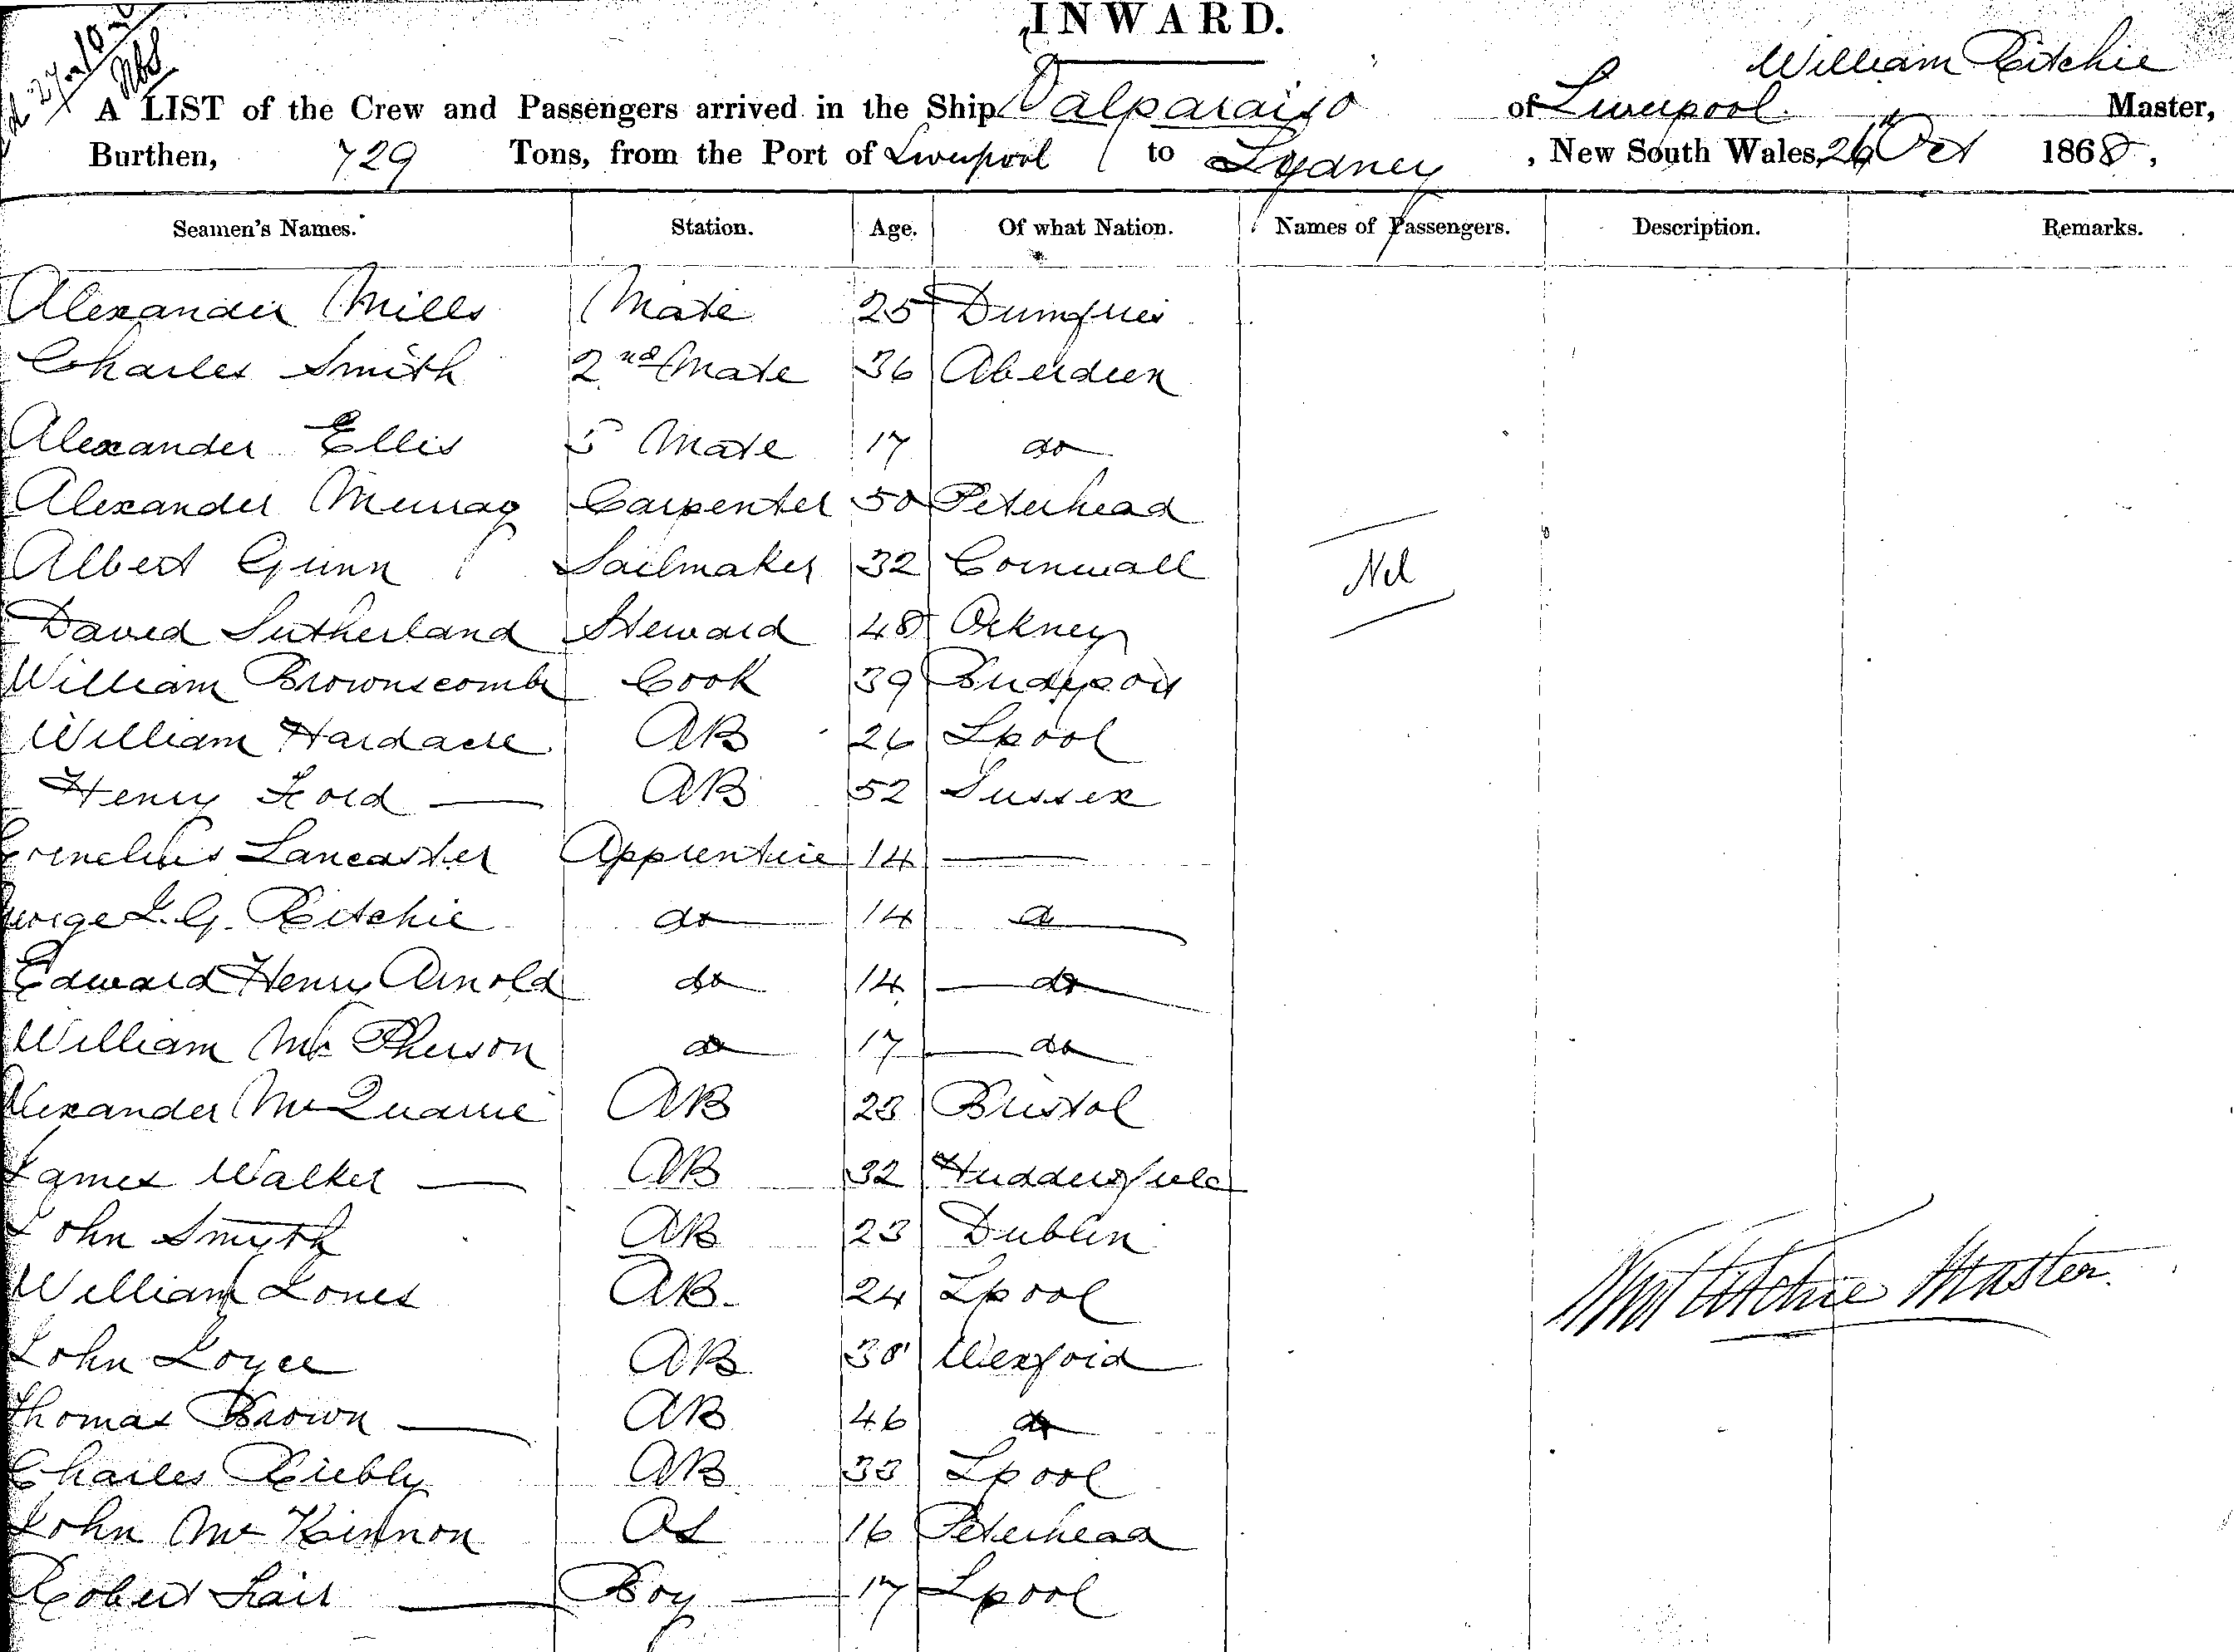 INWARD.
William Ritchie
A LIST of the Crew and Passengers arrived in the Ship Valparaiso of Liverpool Master,
Burthen, 729 Tons, from the Port of Liverpool to Sydney, New South Wales, 26th Oct 1868,
Seamen's Names. Station. Age. Of what Nation. Names of Passengers. Description. Remarks.
Alexander Mills Mate 25 Dumfries
Charles Smith 2nd Mate 36 Aberdeen
Alexander Ellis Mate 17 do
Alexander Murray Carpenter 50 Peterhead
Albert Gunn Sailmaker 32 Cornwall
Nil
David Sutherland Steward 48 Orkney
William Brownscombe Cook 39 Bridport
William Hardacre AB 26 Lpool
Henry Ford — AB 52 Sussex
Cornelius Lancaster Apprentice 14 —
George L. G. Ritchie do 14 do
Edward Henry Arnold do 14 — do
William McPherson do 17 — do
Alexander McQuarrie AB 23 Bristol
James Walker — AB 32 Huddersfield
John Smyth AB 23 Dublin
William Jones AB 24 Lpool
Wm Ritchie Master.
John Joyce AB 30 Wexford
Thomas Brown — AB 46 do
Charles AB 33 Lpool
John McKinnon OS 16 Peterhead
Robert Fair — Boy — 17 Lpool